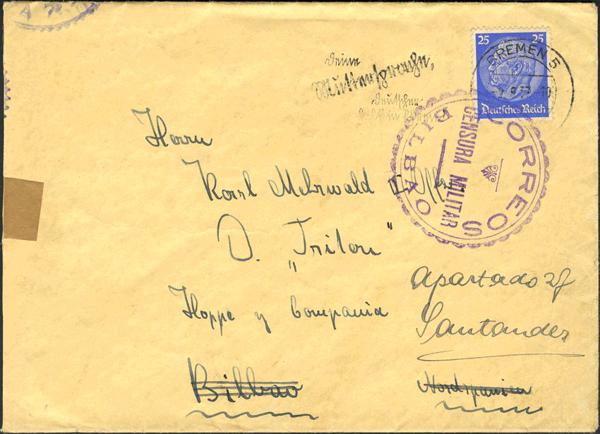 25 25
Deutsches Reich
BREMEN 5
Deine
Muttersprache,
CORREOS
CENSURA MILITAR
BILBAO
Herrn
Karl Mehrwald
D. "Triton"
Hoppe y Compania
Apartado 27
Santander
Bilbao
Nordspanien